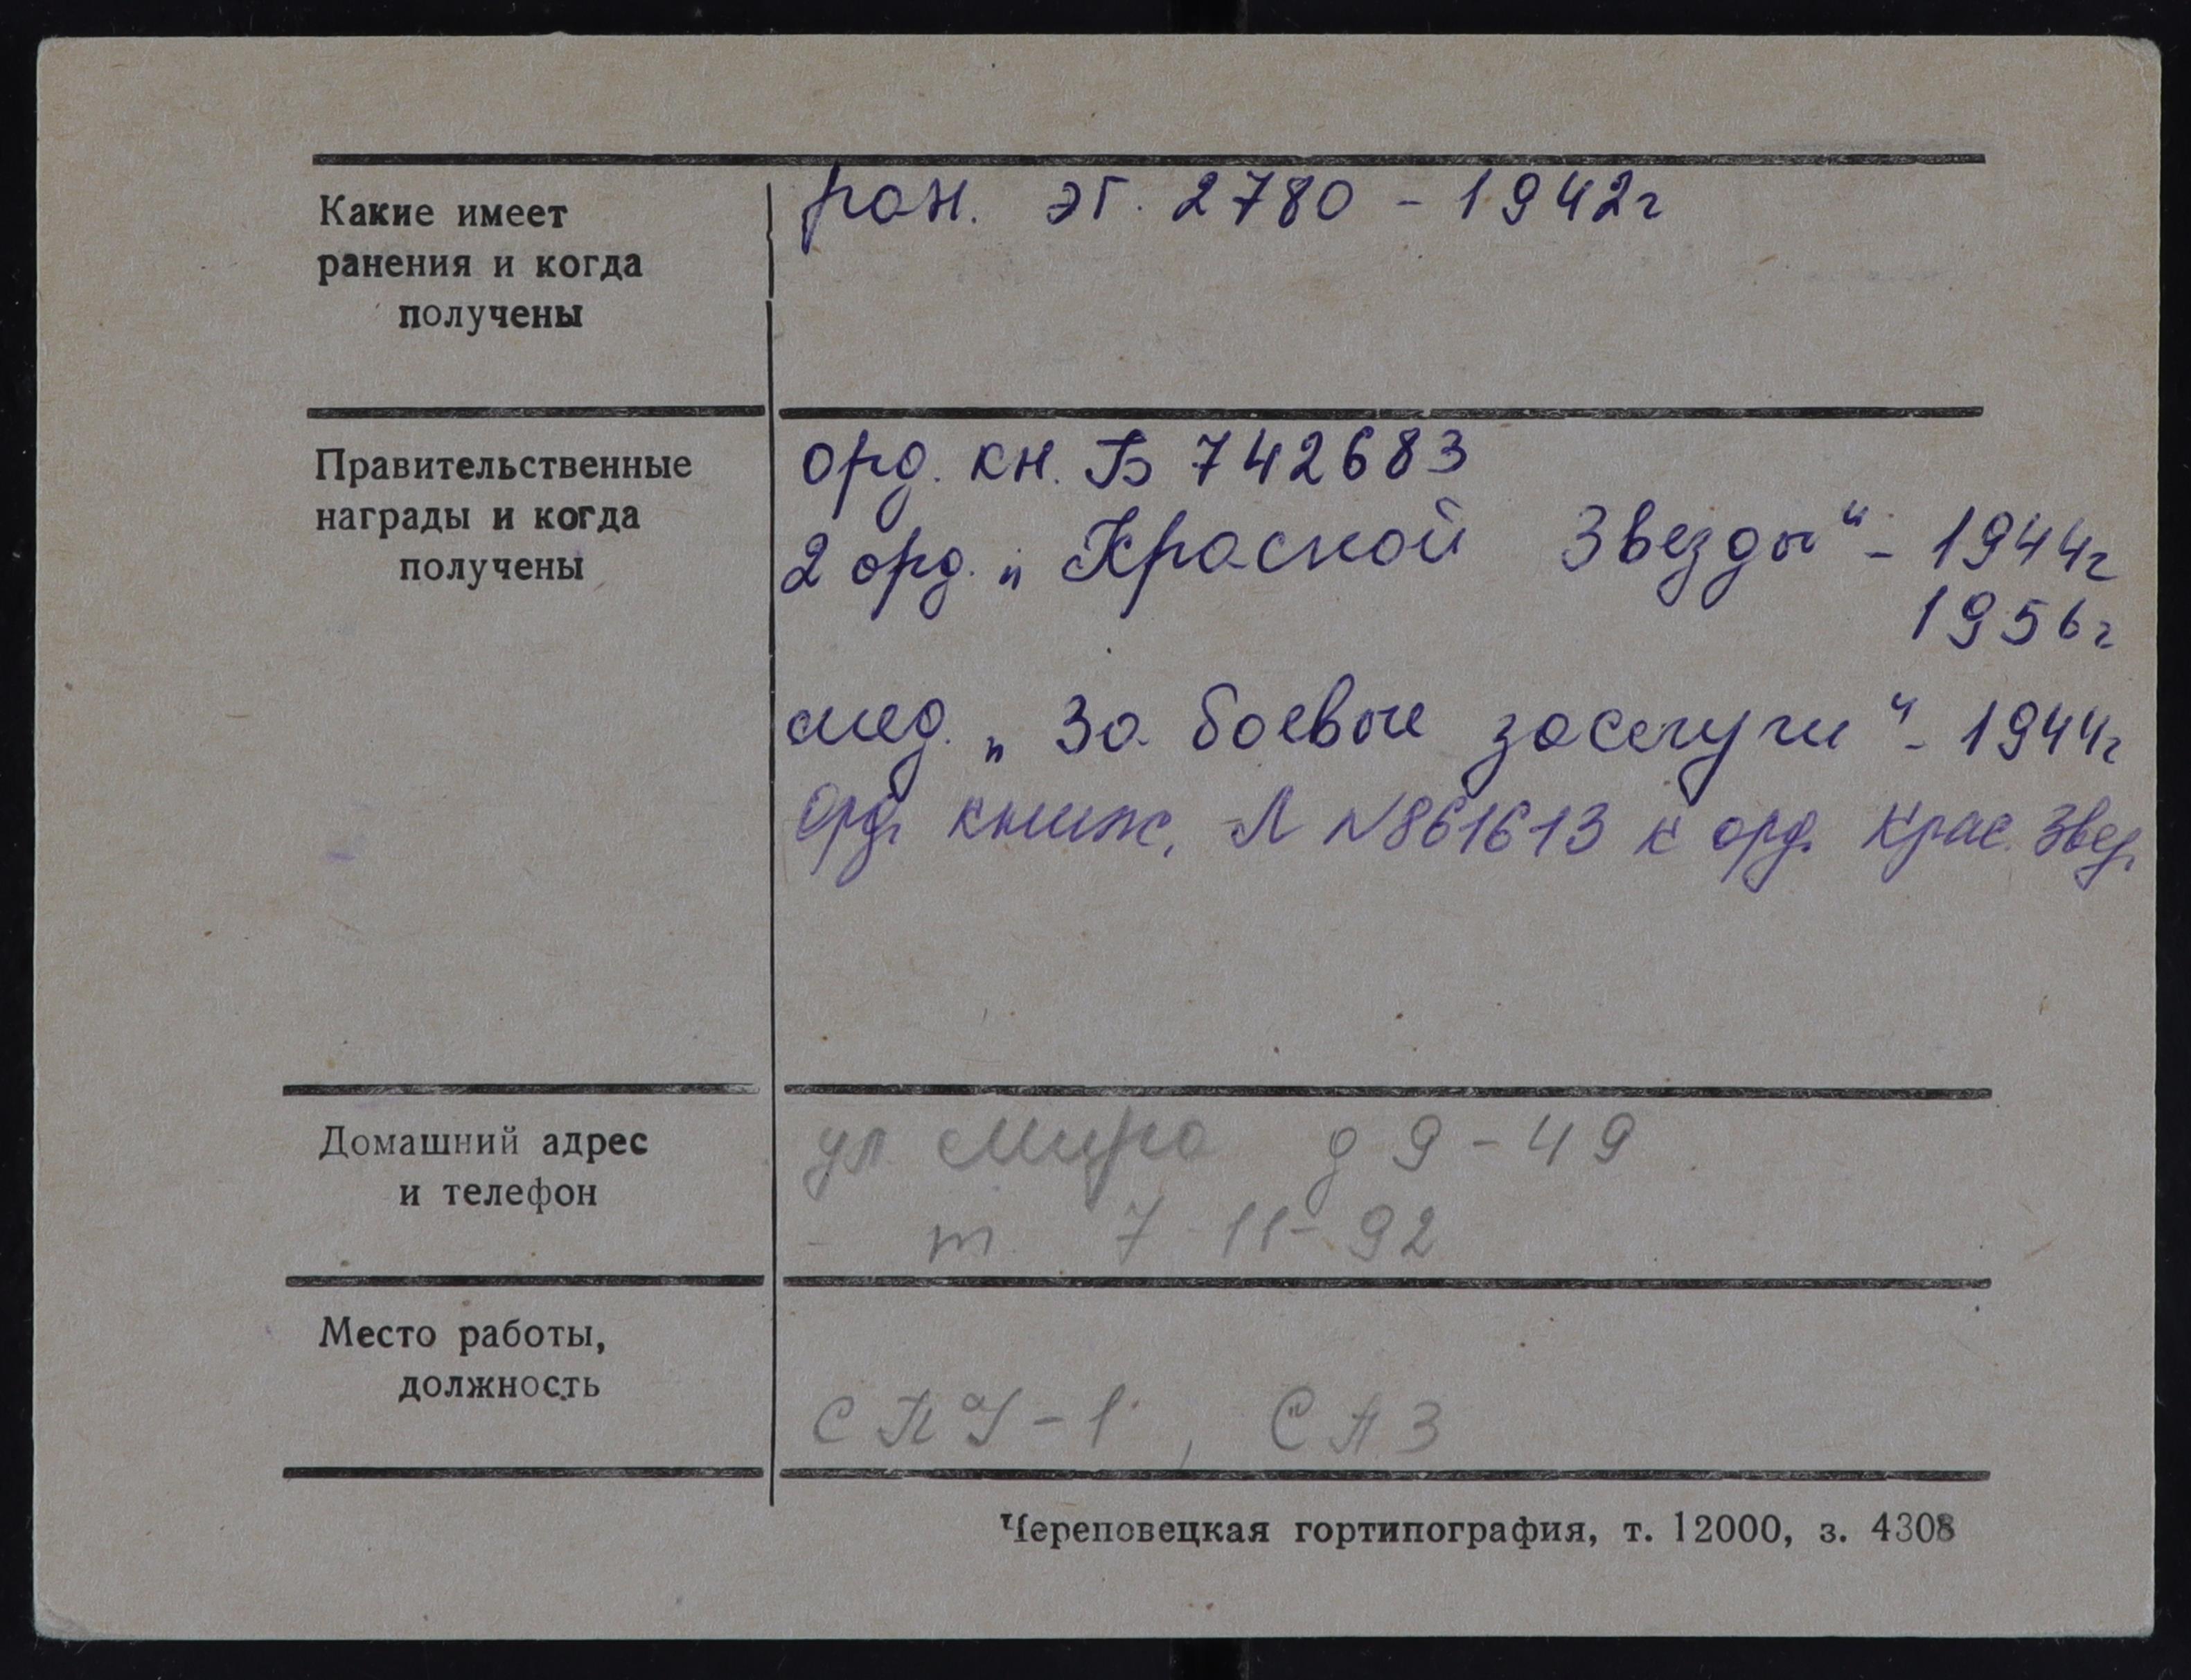 Какие имеет
ранения и когда
получены
ран. эг. 2780 - 1942г
Правительственные
награды и когда
получены
орд. кн. Б 742683
2 орд. „Красной Звезды“ - 1944г
1956г
мед. „За боевые заслуги“ - 1944г
Орд. книж. Л №861613 к орд. Крас. Звез.
Домашний адрес
и телефон
ул Мира д 9-49
- т. 7-11-92
Место работы,
должность
СПУ-1, СПЗ
Череповецкая гортипография, т. 12000, з. 4308